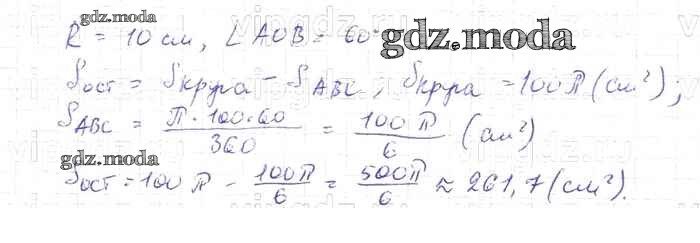 R = 10 см, ∠AOB = 60°
gdz.moda
Sост = Sкруга - SABC, Sкруга = 100π (см²);
SABC = π·100·60/360 = 100π/6 (см²)
gdz.moda
Sост = 100π - 100π/6 = 500π/6 ≈ 261,7 (см²).